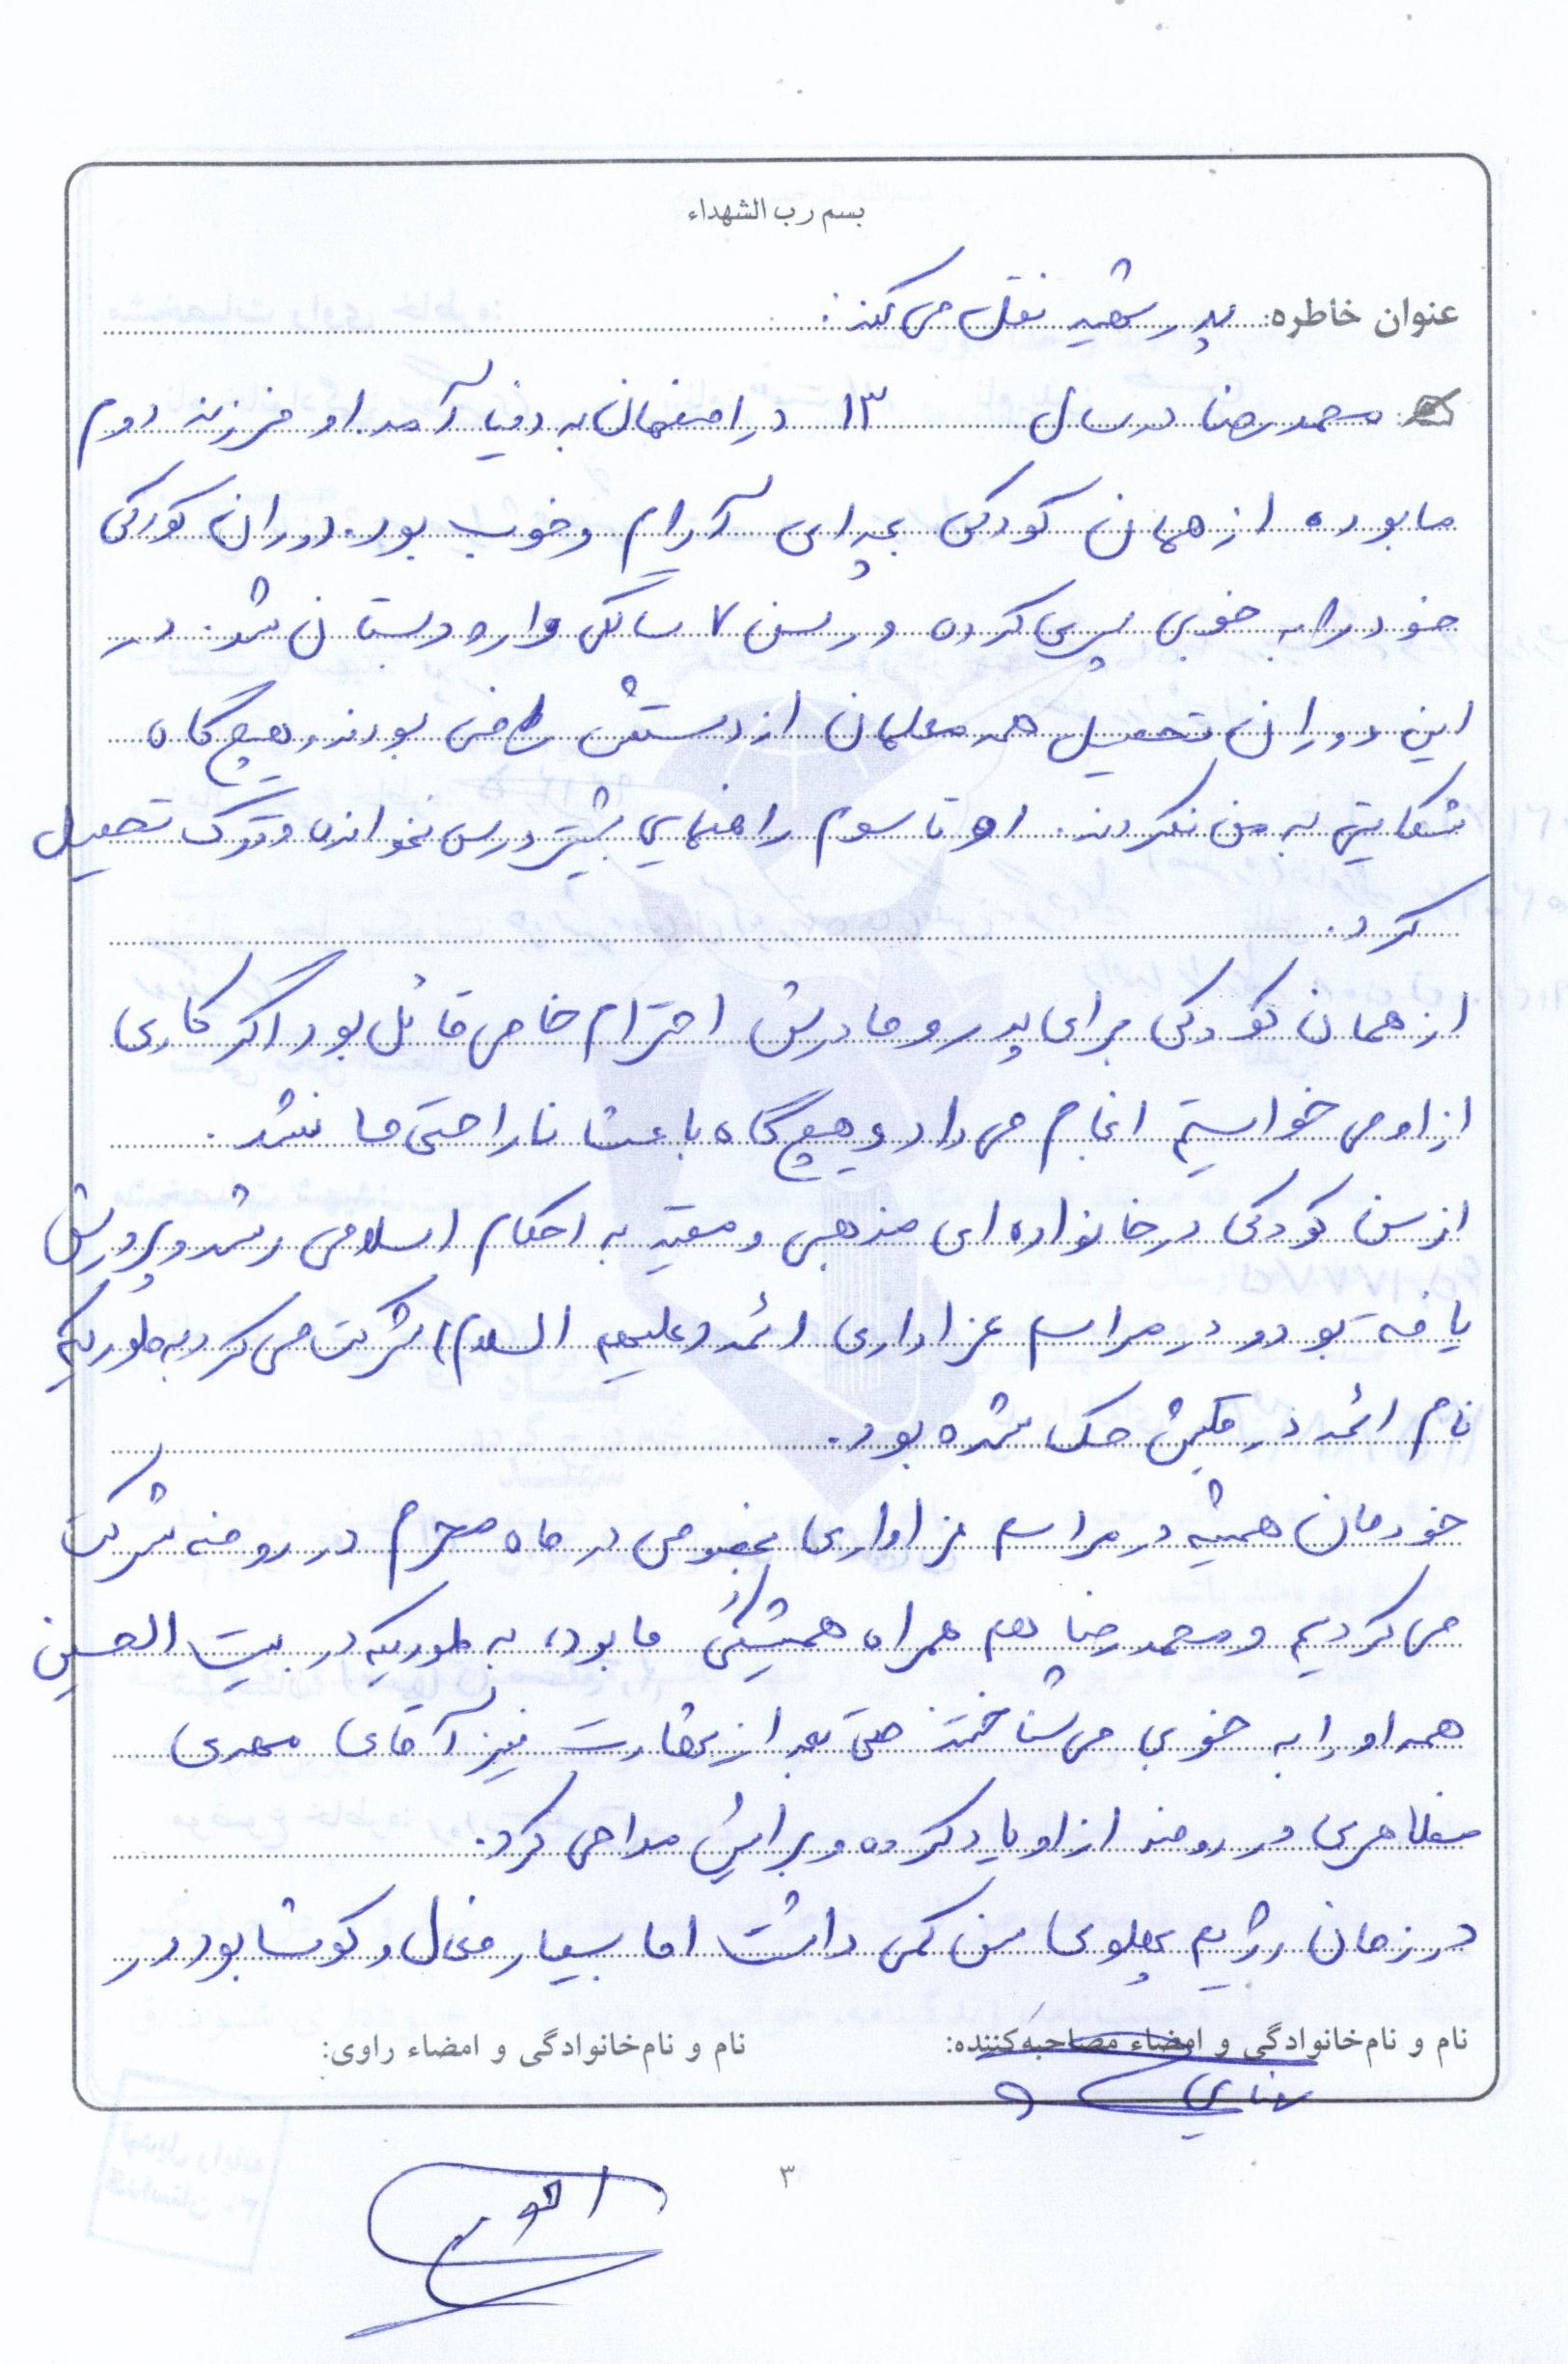 بسم رب الشهداء
عنوان خاطره: پدر شهید نقل می کند:
محمدرضا در سال ۱۳ در اصفهان به دنیا آمد. او فرزند دوم
ما بوده از همان کودکی بچه ای آرام و خوب بود. دوران کودکی
خود را به خوبی سپری کرده و در سن ۷ سالگی وارد دبستان شد. در
این دوران تحصیل همه معلمان از دستش راضی بودند و هیچ گاه
شکایتی به من نکردند. او تا سوم راهنمایی بیشتر درس نخوانده و ترک تحصیل
کرد.
از همان کودکی برای پدر و مادرش احترام خاصی قائل بود اگر کاری
از او می خواستیم انجام می داد و هیچ گاه باعث ناراحتی ما نشد.
از سن کودکی در خانواده ای مذهبی و مقید به احکام اسلامی رشد و پرورش
یافته بود و در مراسم عزاداری ائمه (علیهم السلام) شرکت می کرد به طوریکه
نام ائمه در قلبش حک شده بود.
خودمان همیشه در مراسم عزاداری بخصوص در ماه محرم در روضه شرکت
می کردیم و محمدرضا هم همراه همیشگی ما بود، به طوریکه در بیت الحسین
همه او را به خوبی می شناختند حتی بعد از شهادت نیز آقای مهدی
مظاهری در روضه از او یاد کرده و برایش مداحی کرد.
در زمان رژیم پهلوی سن کمی داشت اما بسیار فعال و کوشا بود در
نام و نام‌خانوادگی و امضاء مصاحبه‌کننده:
نام و نام‌خانوادگی و امضاء راوی:
۳